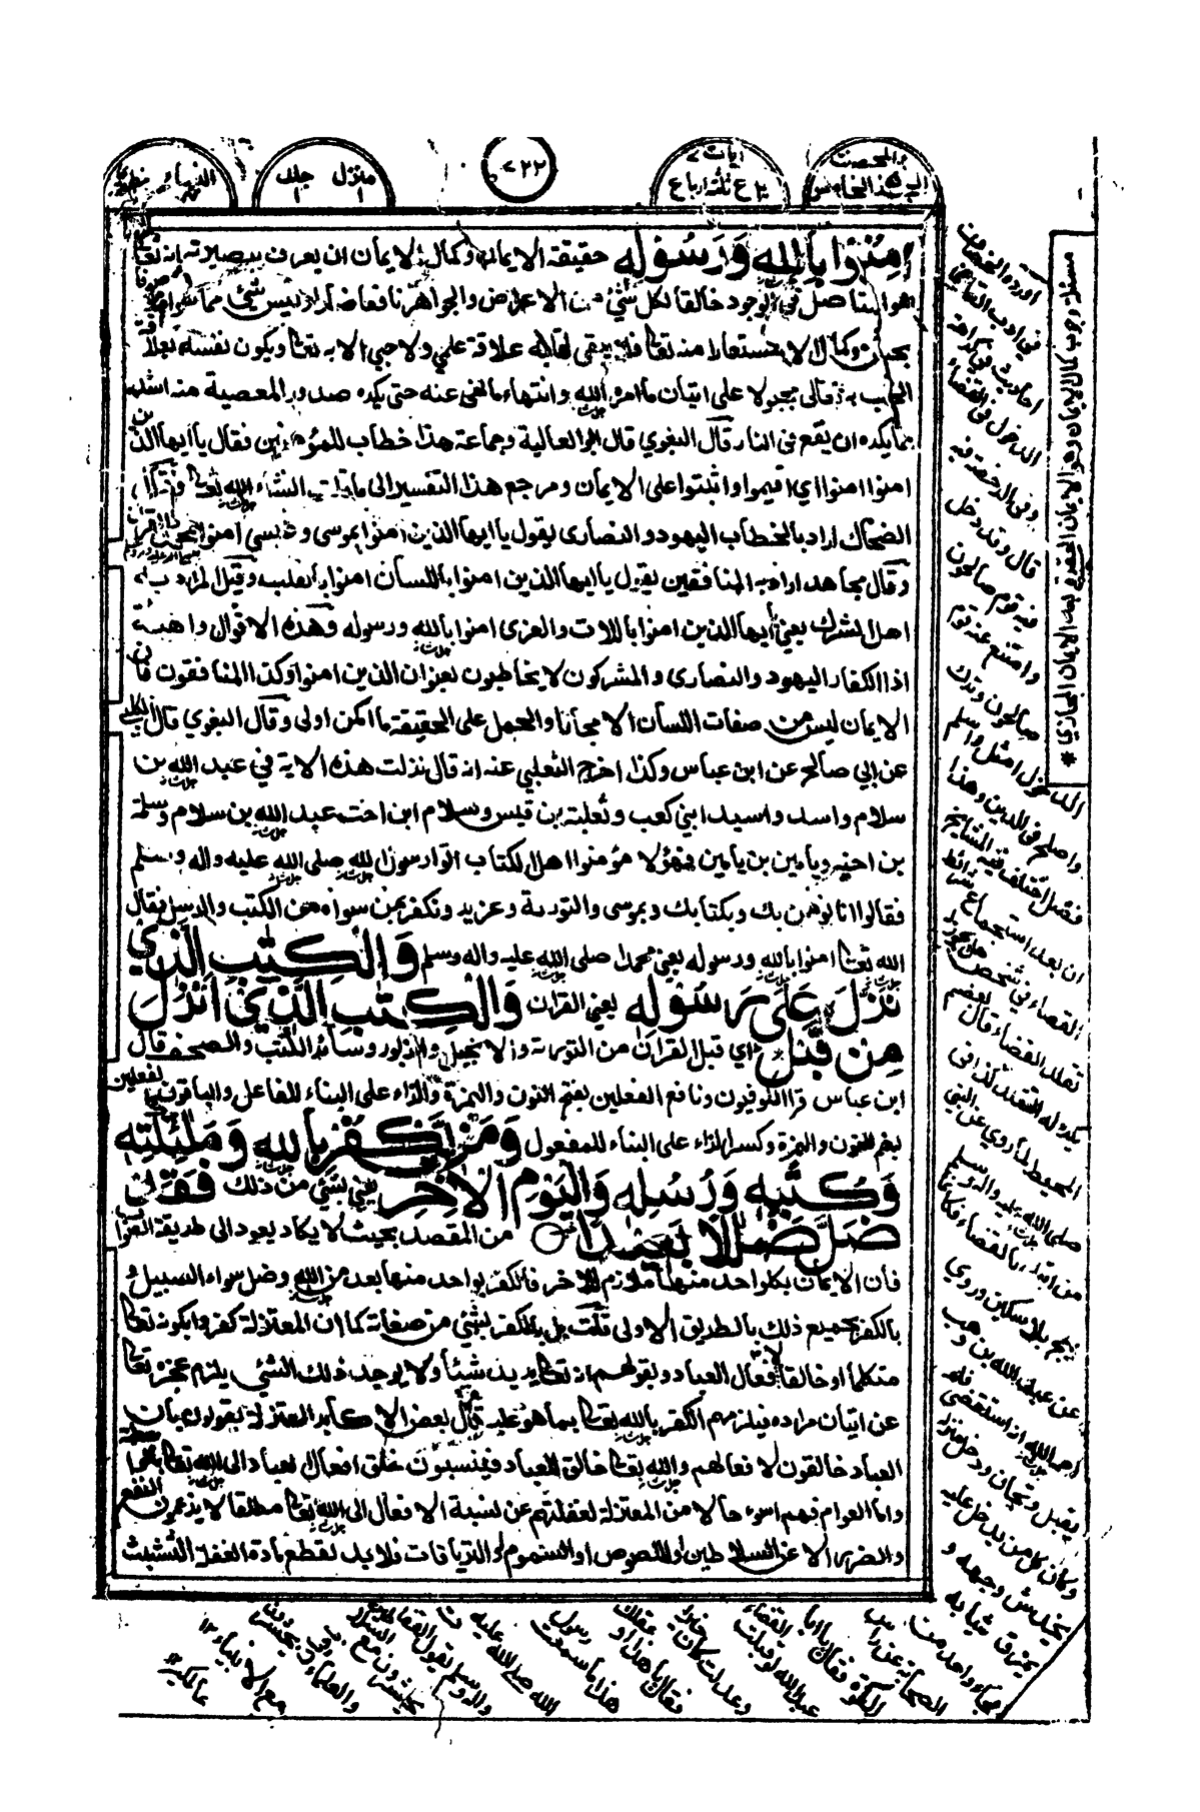 والمحصنت
آيات
النساء
منزل ١
جلد ١
ع ثلثة ارباع
امِنُوْا بِاللهِ وَرَسُوْلِهٖ حقيقة الايمان وكمال الايمان ان يعرف ببصيرته انه تعالى
هو المتاصل فى الوجود خالقا لكل شئ من الاعراض والجواهر نافعا ضارا ليس شئ مما سواه
وكمال الا مستعارا منه تعالى فلا يبقى له علاقة علمي ولا حبي الا به تعالى ويكون نفسه بعلاقة
الحب به تعالى مجبولا على اتيان ما امره الله وانتهاء ما نهى عنه حتى يكره صدور المعصية منه اشد
مما يكره ان يقع فى النار قال البغوي قال ابو العالية وجماعة هذا خطاب للمؤمنين فقال يا ايها الذين
امنوا امنوا اي اقيموا واثبتوا على الايمان ومرجع هذا التفسير الى ما انشاء الله تعالى
الضحاك اراد بالخطاب اليهود والنصارى يقول يا ايها الذين امنوا بموسى وعيسى امنوا بمحمد والقران
وقال مجاهد اراد به المنافقين يقول يا ايها الذين امنوا باللسان امنوا بالقلب وقيل المراد به
اهل الشرك يعني ايها الذين امنوا باللات والعزى امنوا بالله ورسوله وهذه الاقوال واهية
اذ الكفار اليهود والنصارى والمشركون لا يخاطبون بعنوان الذين امنوا وكذا المنافقون فان
الايمان ليس من صفات اللسان الا مجازا والحمل على الحقيقة ما امكن اولى وقال البغوي قال الكلبي
عن ابي صالح عن ابن عباس وكذا اخرج الثعلبي عنه انه قال نزلت هذه الاية في عبد الله بن
سلام واسد واسيد ابني كعب وثعلبة بن قيس وسلام ابن اخت عبد الله بن سلام وسلمة
بن اخيه ويامين بن يامين فهؤلاء مؤمنوا اهل الكتاب اتوا رسول الله صلى الله عليه واله وسلم
فقالوا انا نؤمن بك وبكتابك وبموسى والتورىة وعزير ونكفر بمن سواه من الكتب والرسل فقال
الله تعالى امنوا بالله ورسوله يعني محمد صلى الله عليه واله وسلم وَالْكِتٰبِ الَّذِيْ
نَزَّلَ عَلٰى رَسُوْلِهٖ يعني القران وَالْكِتٰبِ الَّذِيْ اَنْزَلَ
مِنْ قَبْلُ اي قبل القران من التورىة والانجيل والزبور وسائر الكتب والصحف قال
ابن عباس قرا الكوفيون ونافع الفعلين بفتح النون والهمزة والزاء على البناء للفاعل والباقون الفعلين
بضم النون والهمزة وكسر الزاء على البناء للمفعول وَمَنْ يَّكْفُرْ بِاللهِ وَمَلٰٓئِكَتِهٖ
وَكُتُبِهٖ وَرُسُلِهٖ وَالْيَوْمِ الْاٰخِرِ يعني بشئ من ذلك فَقَدْ
ضَلَّ ضَلٰلًا بَعِيْدًا من المقصد بحيث لا يكاد يعود الى طريقه
فان الايمان بكل واحد منها ملازم للاخر فالكفر بواحد منها بعد من الله وضل سواء السبيل
بالكفر بجميع ذلك بالطريق الاولى قلت بل بالكفر بشئ من صفاته كما ان المعتزلة كفروا بكونه تعالى
متكلما او خالقا لافعال العباد وبقولهم انه تعالى يريد شيئا ولا يوجد ذلك الشئ يلزم عجزه تعالى
عن اتيان مراده فيلزمهم الكفر بالله تعالى بما هو عليه قال بعض الاكابر المعتزلة يقولون بان
العباد خالقون لافعالهم والله تعالى خالق العباد فينسبون خلق افعال العباد الى الله تعالى
واما العوام فهم اسوء حالا من المعتزلة لغفلتهم عن نسبة الافعال الى الله تعالى مطلقا لا يذعنون النفع
والضرر الا عن السلاطين او اللصوص او السموم او الترياقات فلا بد لقطع مادة الغفلة التشبث
مسئلة وجوب كمال الايمان وهو الايمان الحقيقي بعد الايمان المجازي *
فى ادب القاضي
احاديث فى كراهة
الدخول فى القضاء
وفى الرخصة فيه
قال وقد دخل
فيه قوم صالحون
وامتنع عنه قوم
صالحون وترك
الدخول امثل واسلم
واصلح فى الدين وهذا
فصل اختلف فيه المشايخ
ان بعد استجماع شرائط
القضاء فى شخص هل يجوز
تقلد القضاء قال بعضهم
يكره له التقلد
المحيط لما روي عن النبي
صلى الله عليه واله وسلم
من ابتلى بالقضاء فكانما
ذبح بلا سكين وروي
عن عبد الله بن وهب
رحمه الله اذا استقضى فلم
يقبل
وكان كل من يدخل عليه
يخدش وجهه و
يمزق ثيابه
فجاء واحد من
فقال يا ابا
عبد الله لو قبلت القضاء
وعدلت كان خيرا
فقال يا هذا او عقلك
هذا ما سمعت رسول
الله صلى الله عليه
واله وسلم يقول القضاة
يحشرون مع السلاطين
والعلماء يحشرون
مع الانبياء ١٢